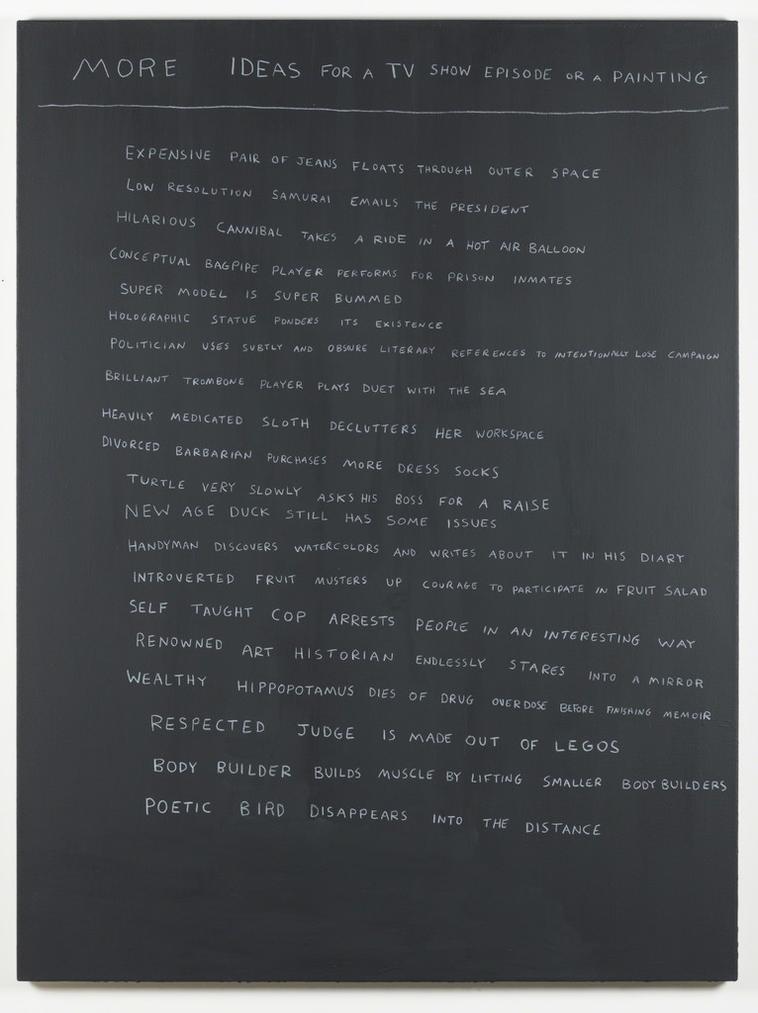 MORE IDEAS FOR A TV SHOW EPISODE OR A PAINTING
EXPENSIVE PAIR OF JEANS FLOATS THROUGH OUTER SPACE
LOW RESOLUTION SAMURAI EMAILS THE PRESIDENT
HILARIOUS CANNIBAL TAKES A RIDE IN A HOT AIR BALLOON
CONCEPTUAL BAGPIPE PLAYER PERFORMS FOR PRISON INMATES
SUPER MODEL IS SUPER BUMMED
HOLOGRAPHIC STATUE PONDERS ITS EXISTENCE
POLITICIAN USES SUBTLY AND OBSURE LITERARY REFERENCES TO INTENTIONALLY LOSE CAMPAIGN
BRILLIANT TROMBONE PLAYER PLAYS DUET WITH THE SEA
HEAVILY MEDICATED SLOTH DECLUTTERS HER WORKSPACE
DIVORCED BARBARIAN PURCHASES MORE DRESS SOCKS
TURTLE VERY SLOWLY ASKS HIS BOSS FOR A RAISE
NEW AGE DUCK STILL HAS SOME ISSUES
HANDYMAN DISCOVERS WATERCOLORS AND WRITES ABOUT IT IN HIS DIARY
INTROVERTED FRUIT MUSTERS UP COURAGE TO PARTICIPATE IN FRUIT SALAD
SELF TAUGHT COP ARRESTS PEOPLE IN AN INTERESTING WAY
RENOWNED ART HISTORIAN ENDLESSLY STARES INTO A MIRROR
WEALTHY HIPPOPOTAMUS DIES OF DRUG OVERDOSE BEFORE FINISHING MEMOIR
RESPECTED JUDGE IS MADE OUT OF LEGOS
BODY BUILDER BUILDS MUSCLE BY LIFTING SMALLER BODYBUILDERS
POETIC BIRD DISAPPEARS INTO THE DISTANCE